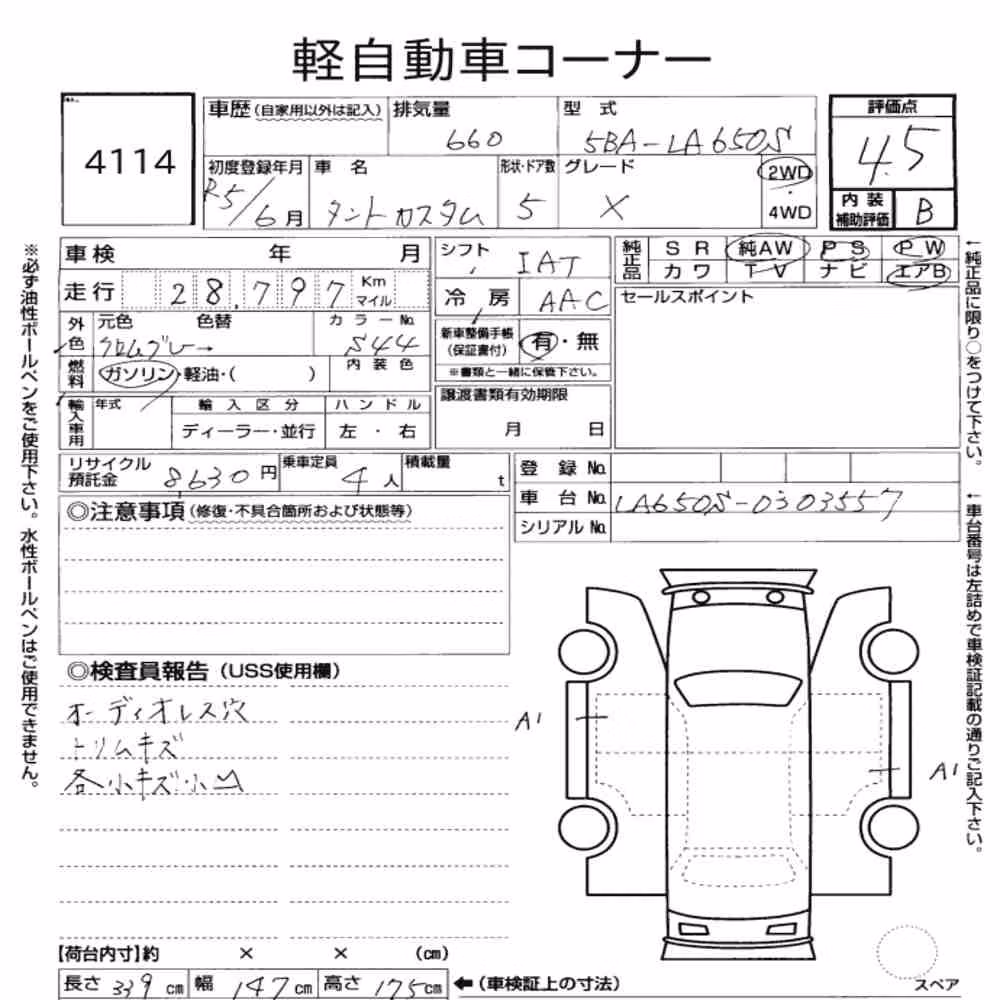 軽自動車コーナー
4114
車歴(自家用以外は記入)
排気量
660
型 式
5BA-LA650S
評価点
4.5
初度登録年月
R5/6月
車 名
タントカスタム
形状・ドア数
5
グレード
X
2WD
・
4WD
内 装
補助評価
B
車検 年 月
シフト
IAT
純正品
SR 純AW PS PW
カワ TV ナビ エアB
走行 28,797 Km
マイル
冷 房
AAC
セールスポイント
外色
元色 色替
カラーNo.
クロムグレー→
S44
新車整備手帳
(保証書付)
有・無
※書類と一緒に保管下さい。
燃料
ガソリン・軽油・( )
内 装 色
輸入車用
年式
輸 入 区 分
ハ ン ド ル
ディーラー・並行
左 ・ 右
譲渡書類有効期限
月 日
リサイクル
預託金
8630円
乗車定員
4人
積載量
t
登 録 No.
車 台 No.
LA650S-0303557
シリアル No.
◎注意事項(修復・不具合箇所および状態等)
◎検査員報告(USS使用欄)
オーディオレス穴
トリムキズ
各小キズ小凹
A1
A1
【荷台内寸】約 × × (cm)
長さ 339cm 幅 147cm 高さ 175cm
←(車検証上の寸法)
スペア
※必ず油性ボールペンをご使用下さい。水性ボールペンはご使用できません。
←純正品に限り○をつけて下さい。
←車台番号は左詰めで車検証記載の通りご記入下さい。